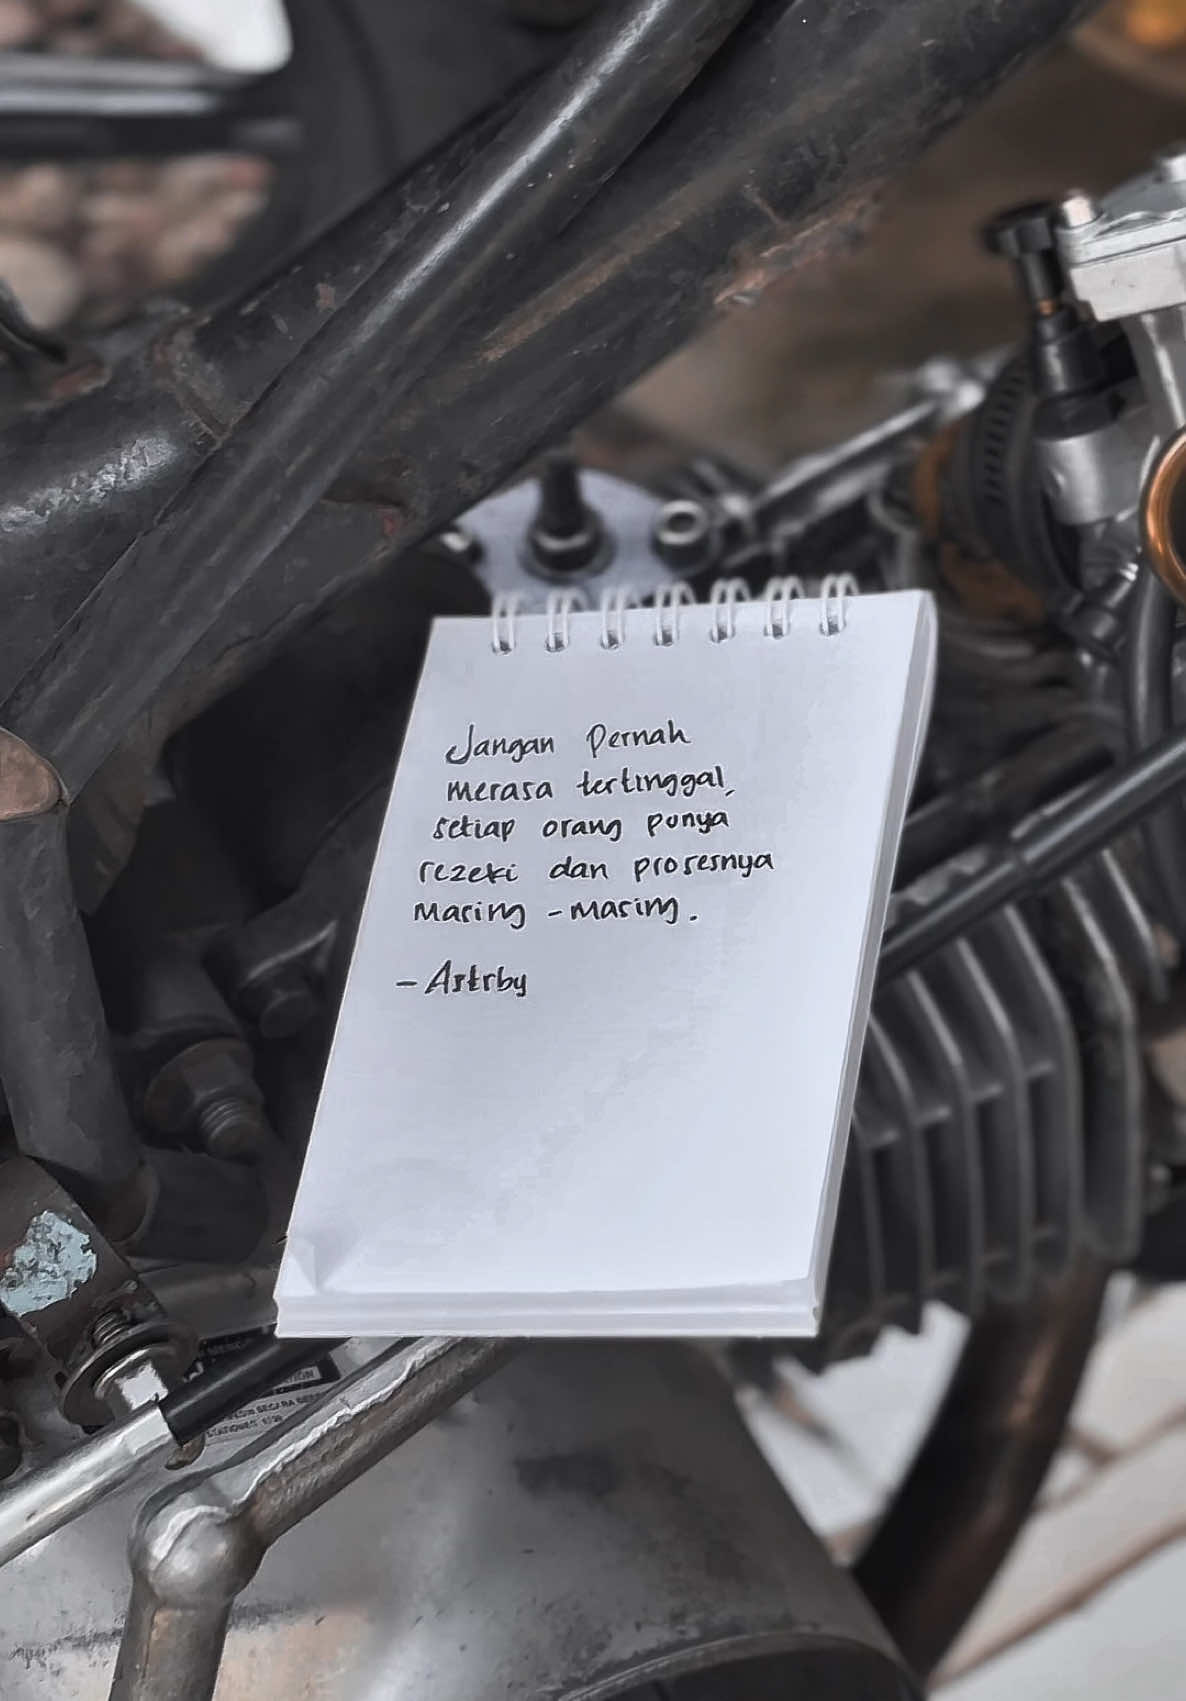 Jangan Pernah
merasa tertinggal,
setiap orang punya
rezeki dan prosesnya
Masing - Masing.
- Astrby